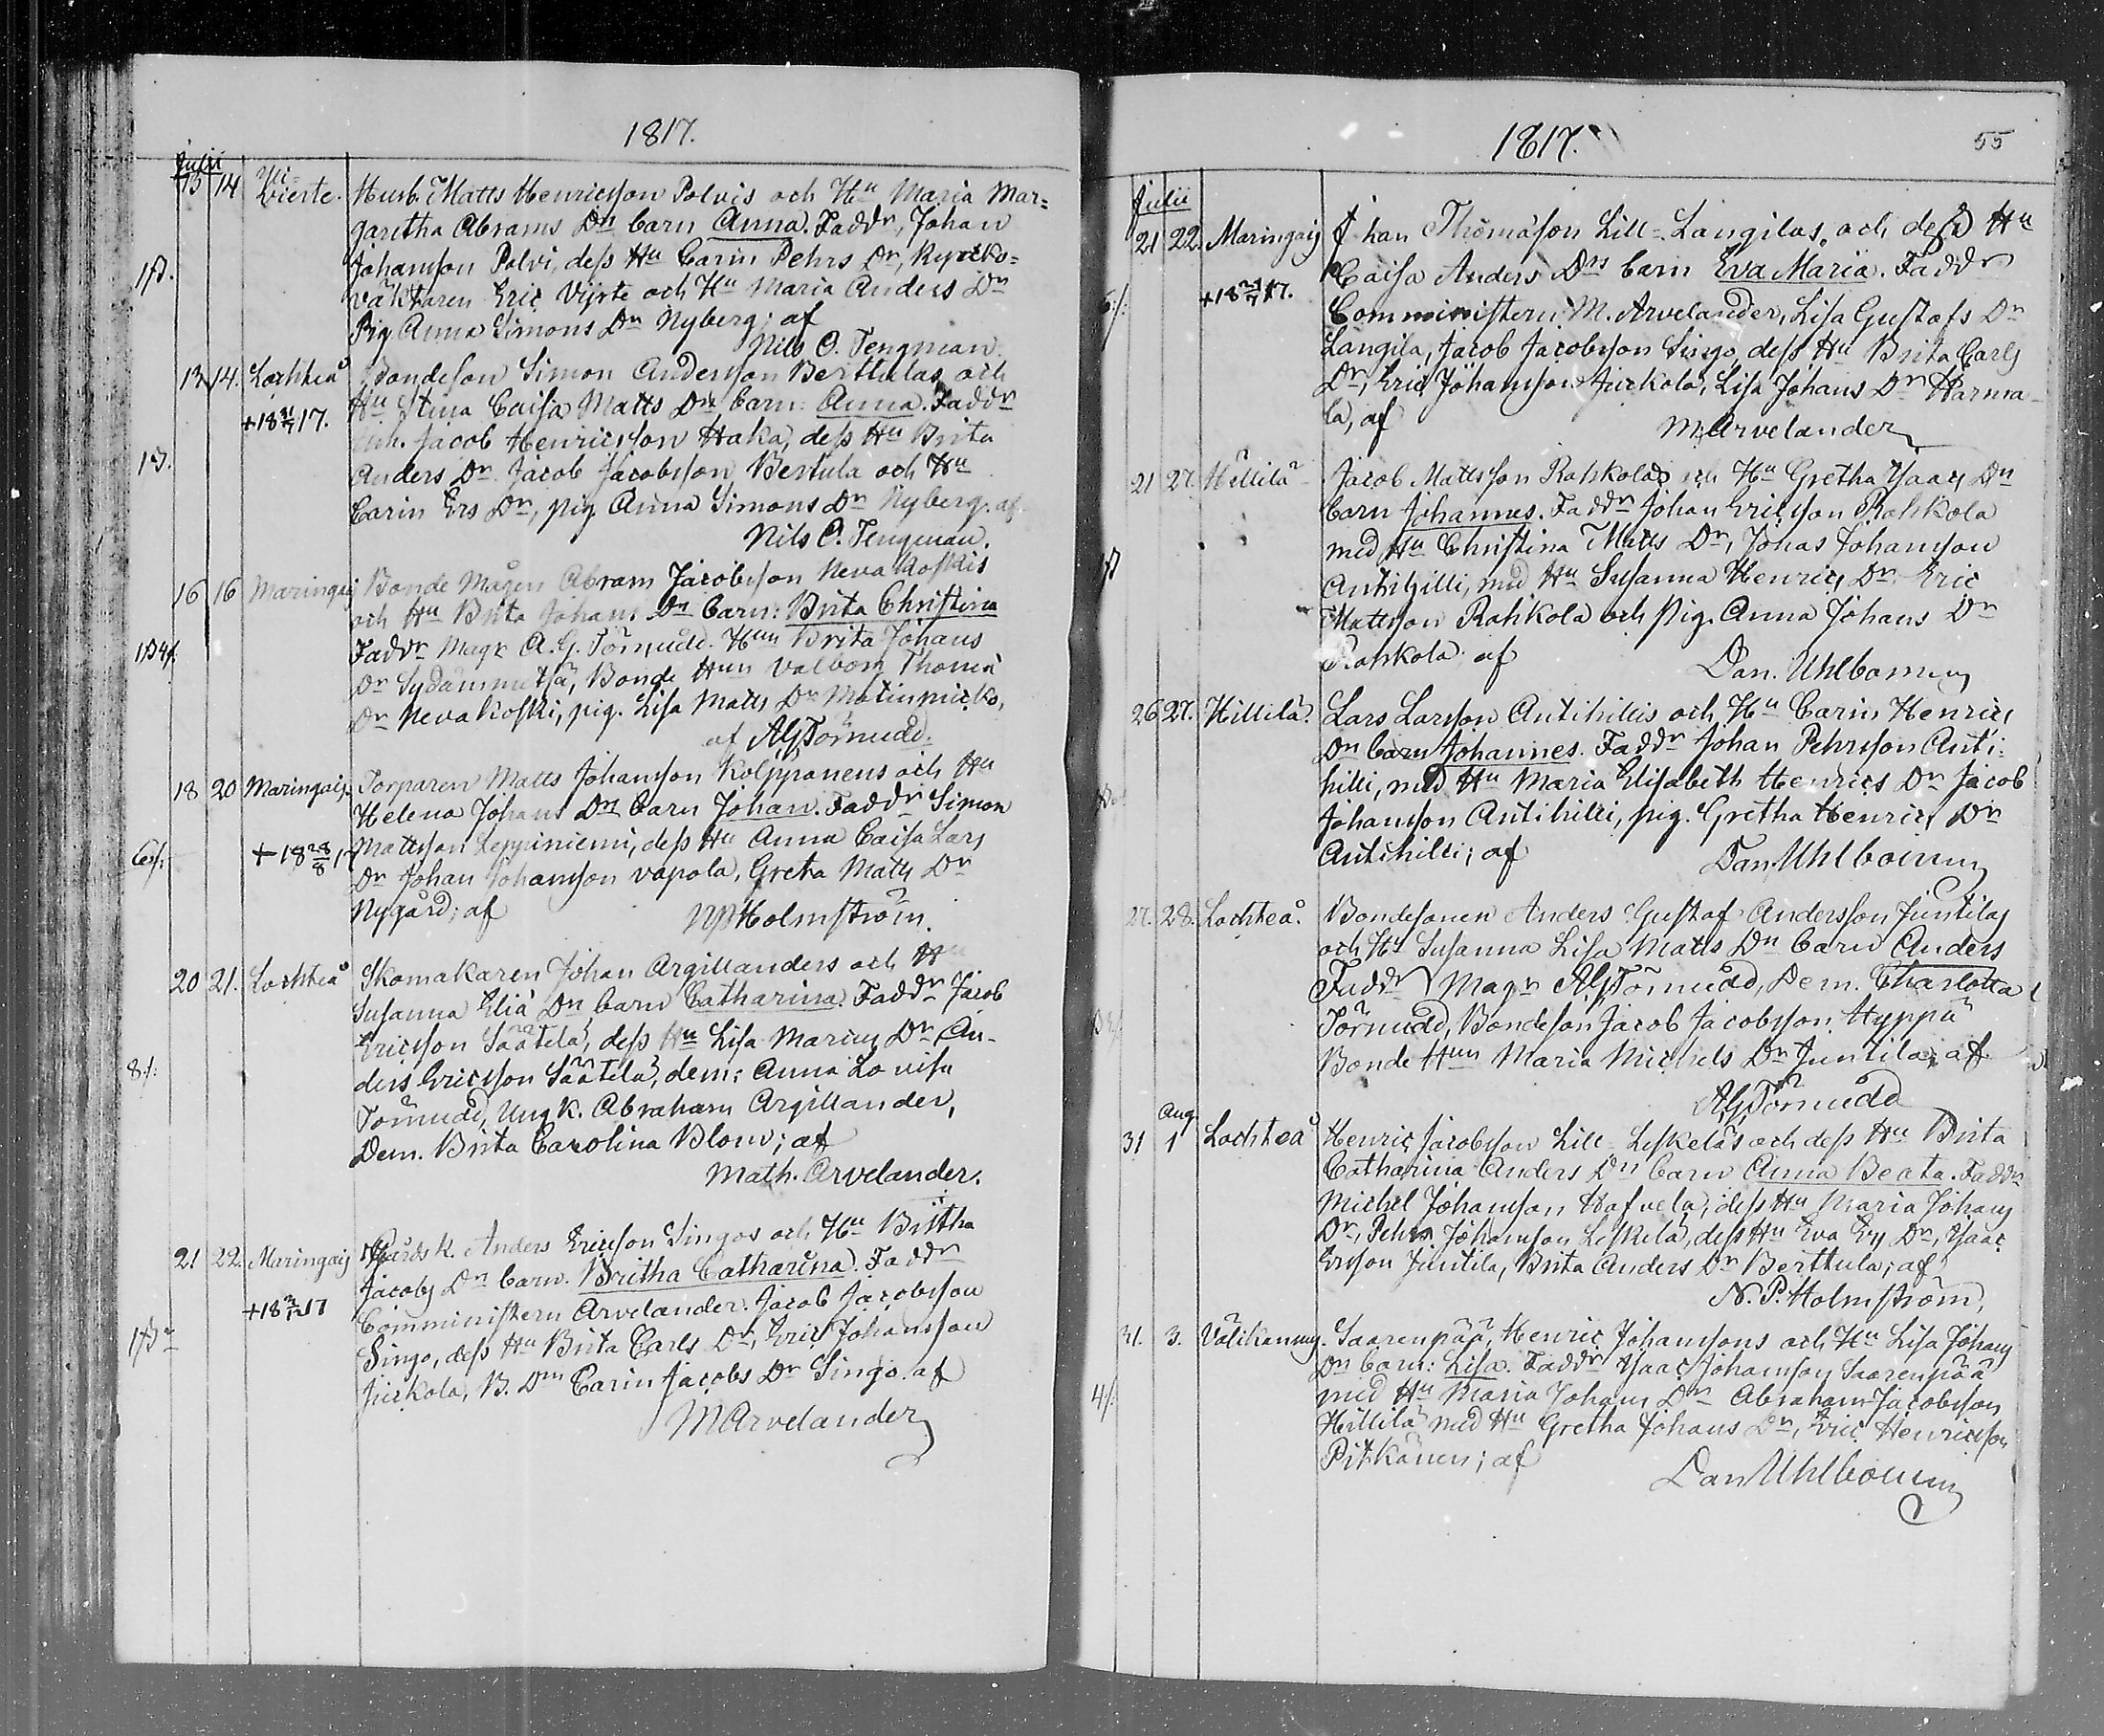 1817.
Julii
13 14 Wierte. Husb. Matts Henricsson Polvis och Hu Maria Mar=
garetha Abrams Dn barn Anna. Faddr, Johan
Johansson Polvi, dess Hu Carin Pehrs Dr, Kyrko=
väktaren Eric Vijrte och Hu Maria Anders Dr
Pig. Anna Simons Dn Nyberg; af
Nils O. Tengman.
13 14. Lochteå Bondeson Simon Andersson Berttulas och
Hu Stina Caisa Matts Dn barn: Anna. Faddr
+18 17. Jacob Henricsson Haka, dess Hu Brita
Anders Dr. Jacob Jacobsson Bertula och Hu
Carin Ers Dr, pig Anna Simons Dr Nyberg. af
Nils O. Tengman.
16 16 Maringaij Bonde Mågen Abram Jacobsson Nevakoskis
och Hu Brita Johans Dn barn: Brita Christina
Faddr Magr A. G. Törnudd. Hun Brita Johans
Dr Sydänmetsä, Bonde Hun Valborg Thomæ
Dr Nevakoski, pig. Lisa Matts Dr Matinmicko,
af AGTörnudd.
18 20 Maringaij. Torparen Matts Johansson Kolppanens och Hu
Helena Johans Dn barn Johan. Faddr Simon
+18 28/8 17 Mattsson Leppiniemi, dess Hu Anna Caisa Lars
Dr Johan Johansson vapola, Greta Matts Dr
Nygård; af NPHolmström.
20 21. Lochteå Skomakaren Johan Argillanders och Hu
Susanna Eliæ Dn barn Catharina. Faddr Jacob
Ericsson Säätelä, dess Hu Lisa Marcus Dr An-
8./: ders Ericsson Säätelä, dem: Anna Lovisa
Törnudd, Ungk. Abraham Argillander,
Dem. Brita Carolina Blom; af
Math. Arvelander.
21 22. Maringaij Anders Ericsson Singos och Hu Britha
Jacobs Dn barn. Britha Catharina. Faddr
+18 17 Comministern Arvelander. Jacob Jacobsson
Singo, dess Hu Brita Carls Dr, Eric Johansson
Juckola, B. Dn Carin Jacobs Dr Singo. af
MArvelander
1817. 55
Julii
21 22. Maringaij Johan Thomasson Lill-Langilas, och dess Hu
Caisa Anders Dns barn Eva Maria. Faddr
+18 17. Comministern M. Arvelander, Lisa Gustafs Dr
Langila, Jacob Jacobsson Singo, dess Hu Brita Carls
Dr, Eric Johansson Juckola, Lisa Johans Dr Harma-
la, af MArvelander
21 27. Hillilä Jacob Mattsson Rahkolas och Hu Gretha Isaacs Dn
barn Johannes. Faddr Johan Ericsson Rahkola
med Hu Christina Matts Dr, Jonas Johansson
Antihilli, med Hu Susanna Henrics Dr. Eric
Mattsson Rahkola och pig. Anna Johans Dr
Rahkola; af Dan. Uhlbom
26 27. Hillilä. Lars Larsson Antihillis och Hu Carin Henrics
Dn barn Johannes. Faddr Johan Pehrsson Anti:
hilli, med Hu Maria Elisabeth Henrics Dr Jacob
Johansson Antihilli, pig. Gretha Henrics Dr
Antihilli; af Dan Uhlbom
27. 28. Lochteå. Bondesonen Anders Gustaf Andersson Juntilas
och Hu Susanna Lisa Matts Dn barn Anders
Faddr Magr AGTörnudd, Dem. Charlotta
Törnudd, Bondeson Jacob Jacobsson Hyppä
Bonde Hun Maria Michels Dr Juntila; af
AGTörnudd
Aug
31 1 Lochteå Henric Jacobsson Lill-Leskeläs och dess Hu Brita
Catharina Anders Dn barn Anna Beata. Faddr
Michel Johansson Hafvela, dess Hu Maria Johans
Dr, Pehr Johansson Leskelä, dess Hu Eva Ers Dr, Isaac
Ersson Juntila, Brita Anders Dr Berttula; af
N. P. Holmström,
31. 3. Välikannus. Saarenpää, Henric Johanssons och Hu Lisa Johans
Dn barn: Lisa. Faddr Isaac Johansson Saarenpää
4/: med Hu Maria Johans Dr Abraham Jacobsson
Hillilä med Hu Gretha Johans Dr, Eric Henricsson
Pitkänen; af Dan Uhlbom